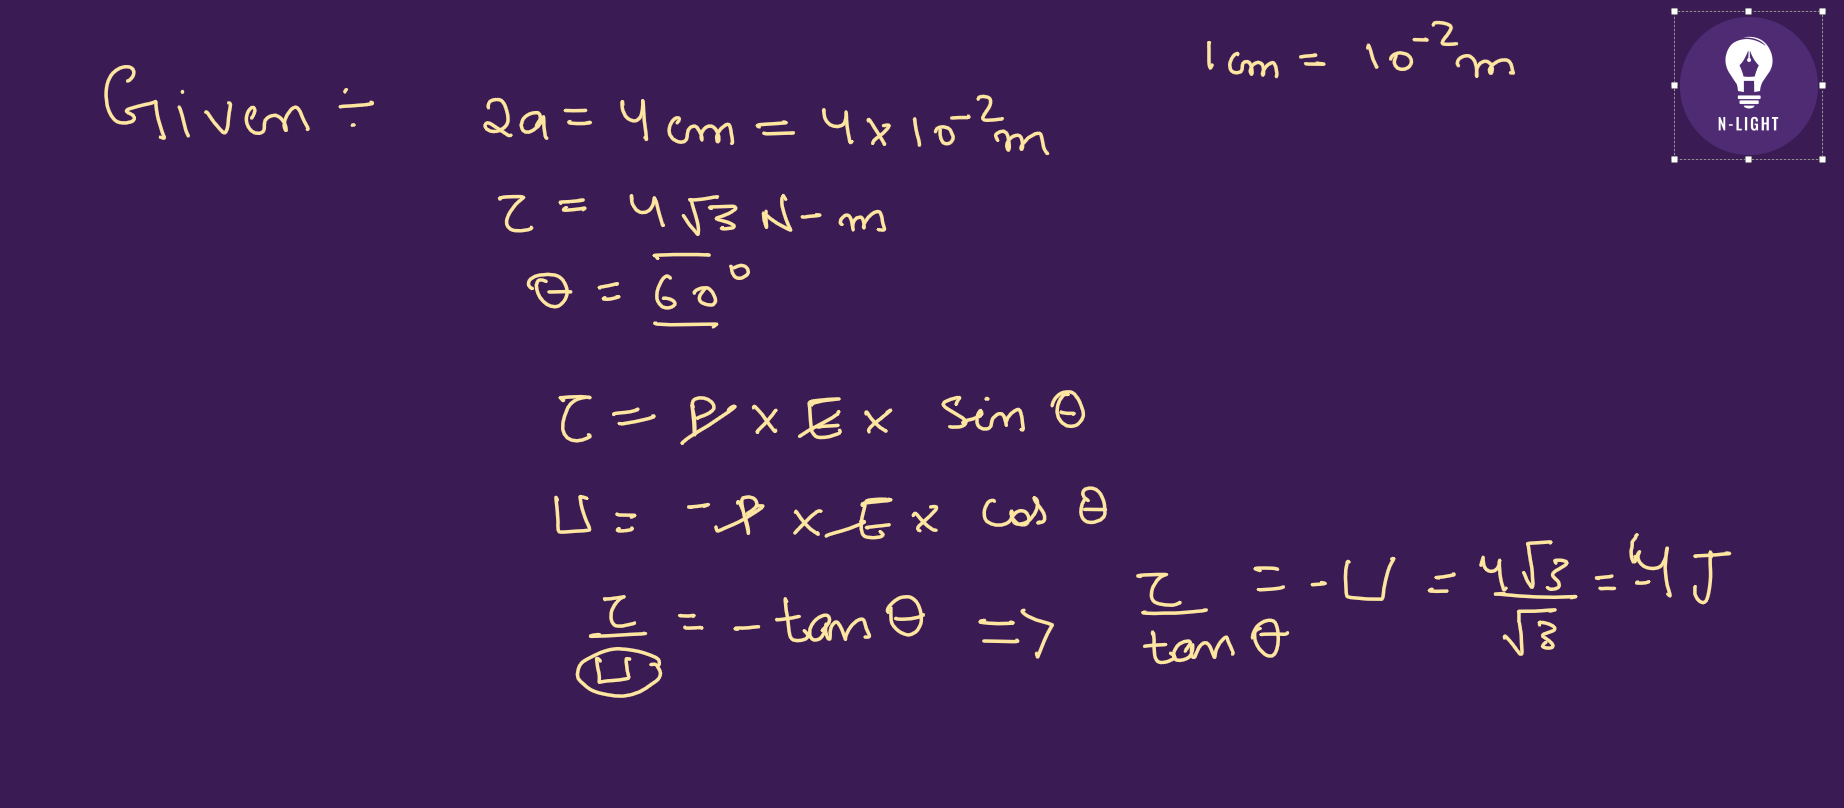 1 cm = 10⁻² m
N-LIGHT
Given ÷ 2a = 4 cm = 4 × 10⁻² m
τ = 4√3 N-m
θ = 60°
τ = P × E × sin θ
U = -P × E × cos θ
τ/U = - tan θ => τ/tan θ = - U = 4√3/√3 = -4 J